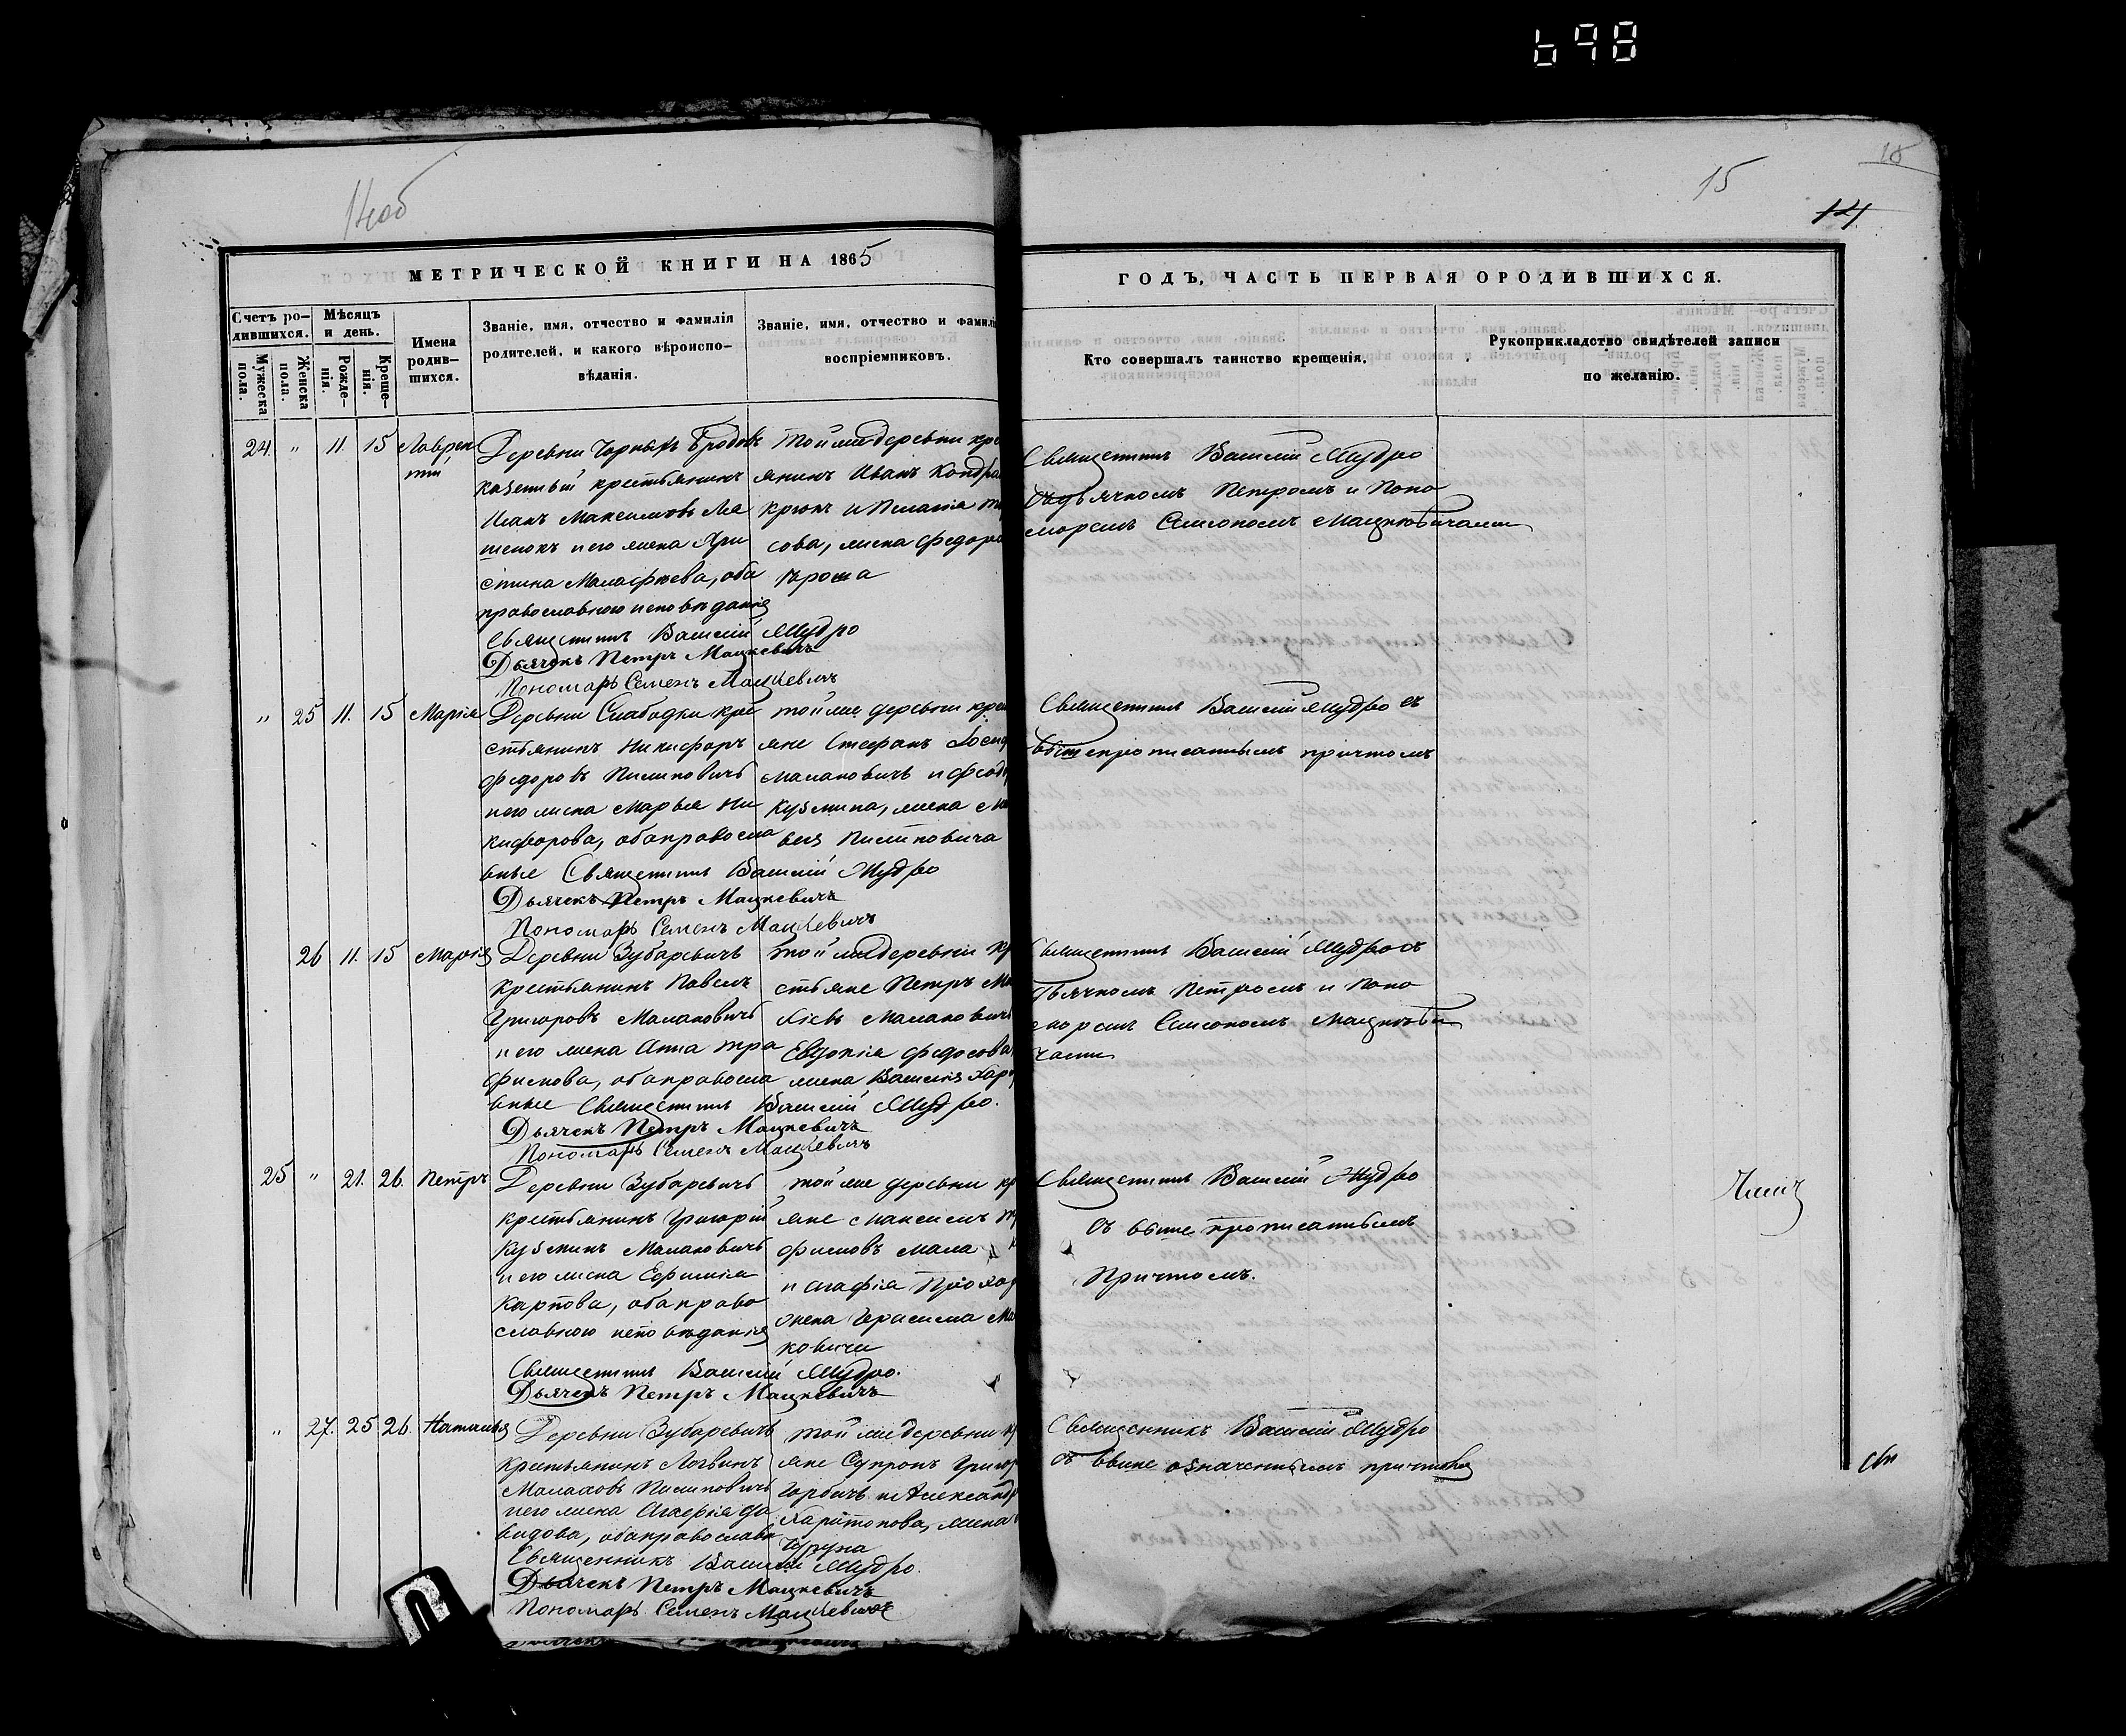 698
14об
15
15
14
МЕТРИЧЕСКОЙ КНИГИ НА 1865
ГОДЪ, ЧАСТЬ ПЕРВАЯ О РОДИВШИХСЯ.
Счетъ ро-
дившихся.
Мужеска
пола.
Женска
пола.
Мѣсяцъ
и день.
Рожде-
нія.
Креще-
нія.
Имена
родив-
шихся.
Званіе, имя, отчество и фамилія
родителей, и какого вѣроиспо-
вѣданія.
Званіе, имя, отчество и фамилі
воспріемниковъ.
Кто совершалъ таинство крещенія.
Рукоприкладство свидѣтелей записи
по желанію.
24. " 11. 15 Лаврен
тій
Деревни Чорныхъ Бродовъ
казенный крестьянинъ
Иванъ Максимовъ
и его жена Хри
стина Малафѣева, оба
православного исповѣданія
Священникъ Василій Мудро
Дьячекъ Петръ Мацкевичъ
Пономарь Семенъ Мацкевичъ
той же деревни кре
янинъ Иванъ Кондра
крюкъ и Пелагія
сова, жена Федора
Священникъ Василій Мудро
дьячкомъ Петромъ и Поно
моремъ Симономъ Мацкевичами
" 25 11. 15 Марія
Деревни Слабодки кре
стьянинъ Никифоръ
Федоровъ Пилиповичъ
и его жена Марья Ни
кифорова, оба правосла
вные Священникъ Василій Мудро
Дьячекъ Петръ Мацкевичъ
Пономарь Семенъ Мацкевичъ
той же деревни крес
яне Стефанъ
Малаховичъ и
Кузмина, жена
Пилиповича
Священникъ Василій Мудро съ
вышепрописаннымъ причтомъ
26 11. 15 Марія
Деревни Зубаревичъ
крестьянинъ Павелъ
Григоровъ Малаховичъ
и его жена Анна Тра
фимова, оба правосла
вные Священникъ Василій Мудро.
Дьячекъ Петръ Мацкевичъ
Пономарь Семенъ Мацкевичъ
той же деревни кр
стьяне Петръ
Малаховичъ
Евдокія Федосова
жена Василія
Священникъ Василій Мудро съ
дьячкомъ Петромъ и Поно
моремъ Симономъ Мацкеви
чами
25 " 21. 26. Петръ
Деревни Зубаревичъ
крестьянинъ Григорій
Кузминъ Малаховичъ
и его жена Ефимія
Карпова, оба право
славного исповѣданія
Священникъ Василій Мудро.
Дьячекъ Петръ Мацкевичъ
той же деревни кр
яне Максимъ Тр
фимовъ Мала
и Агафія Прохор
жена Герасима Ма
ховича
Священникъ Василій Мудро
съ выше прописаннымъ
Причтомъ.
" 27. 25 26. Наталія
Деревни Зубаревичъ
крестьянинъ Логвинъ
Малаховъ Пилиповичъ
и его жена Агафія Да
видова, оба православн
Священникъ Василій Мудро.
Дьячекъ Петръ Мацкевичъ
Пономарь Семенъ Мацкевичъ
той же деревни кр
яне Супронъ Григор
и Александр
Харитонова, жена
Священникъ Василій Мудро
съ выше означеннымъ причтомъ